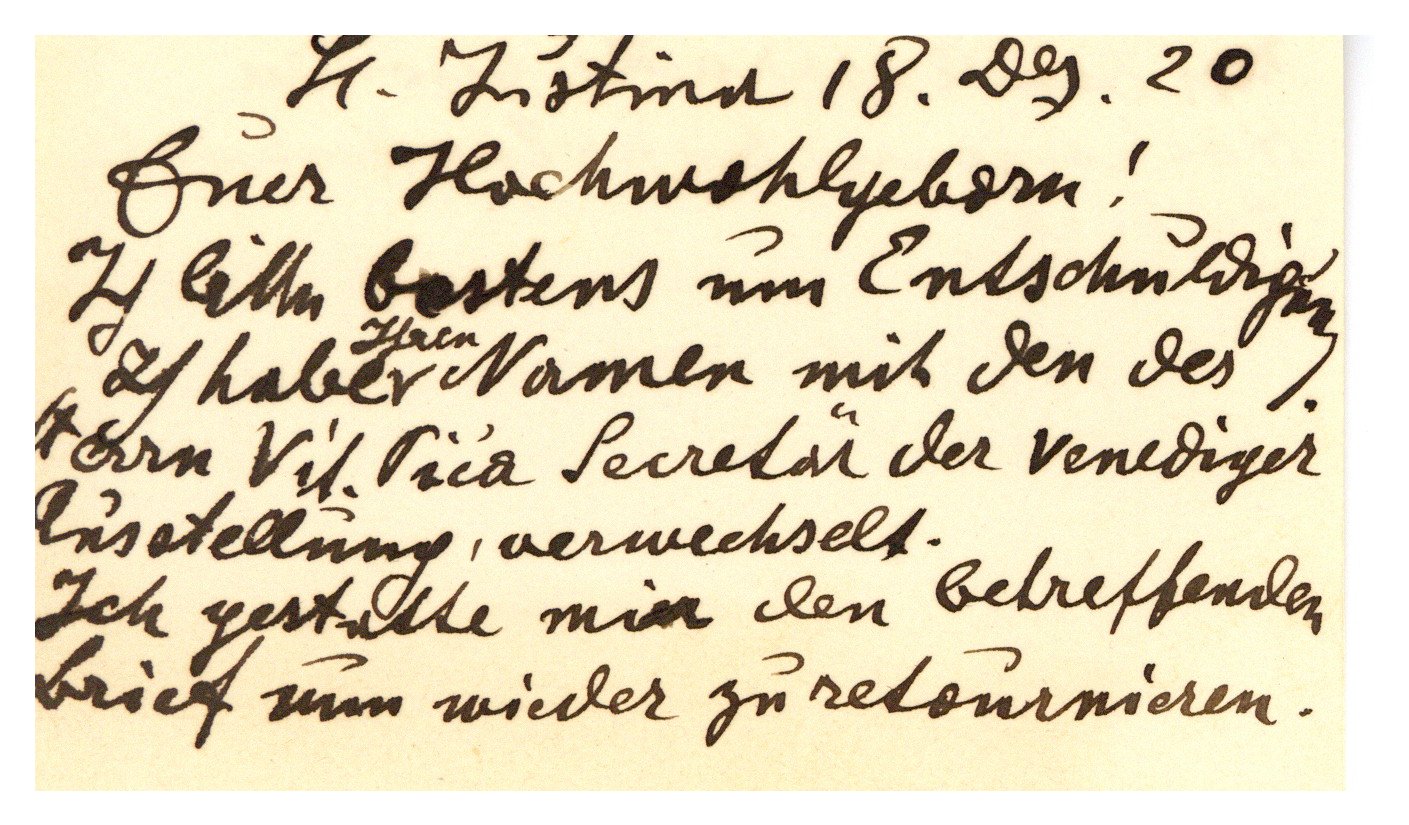 St. Justina 18. Dez. 20
Euer Hochwohlgeborn!
Ich bitte bestens um Entschuldigung
Ich habe Ihren Namen mit den des
Herrn Vit. Pica Secretär der Venediger
Ausstellung, verwechselt.
Ich gestatte mir den betreffenden
Brief nun wieder zu retournieren.